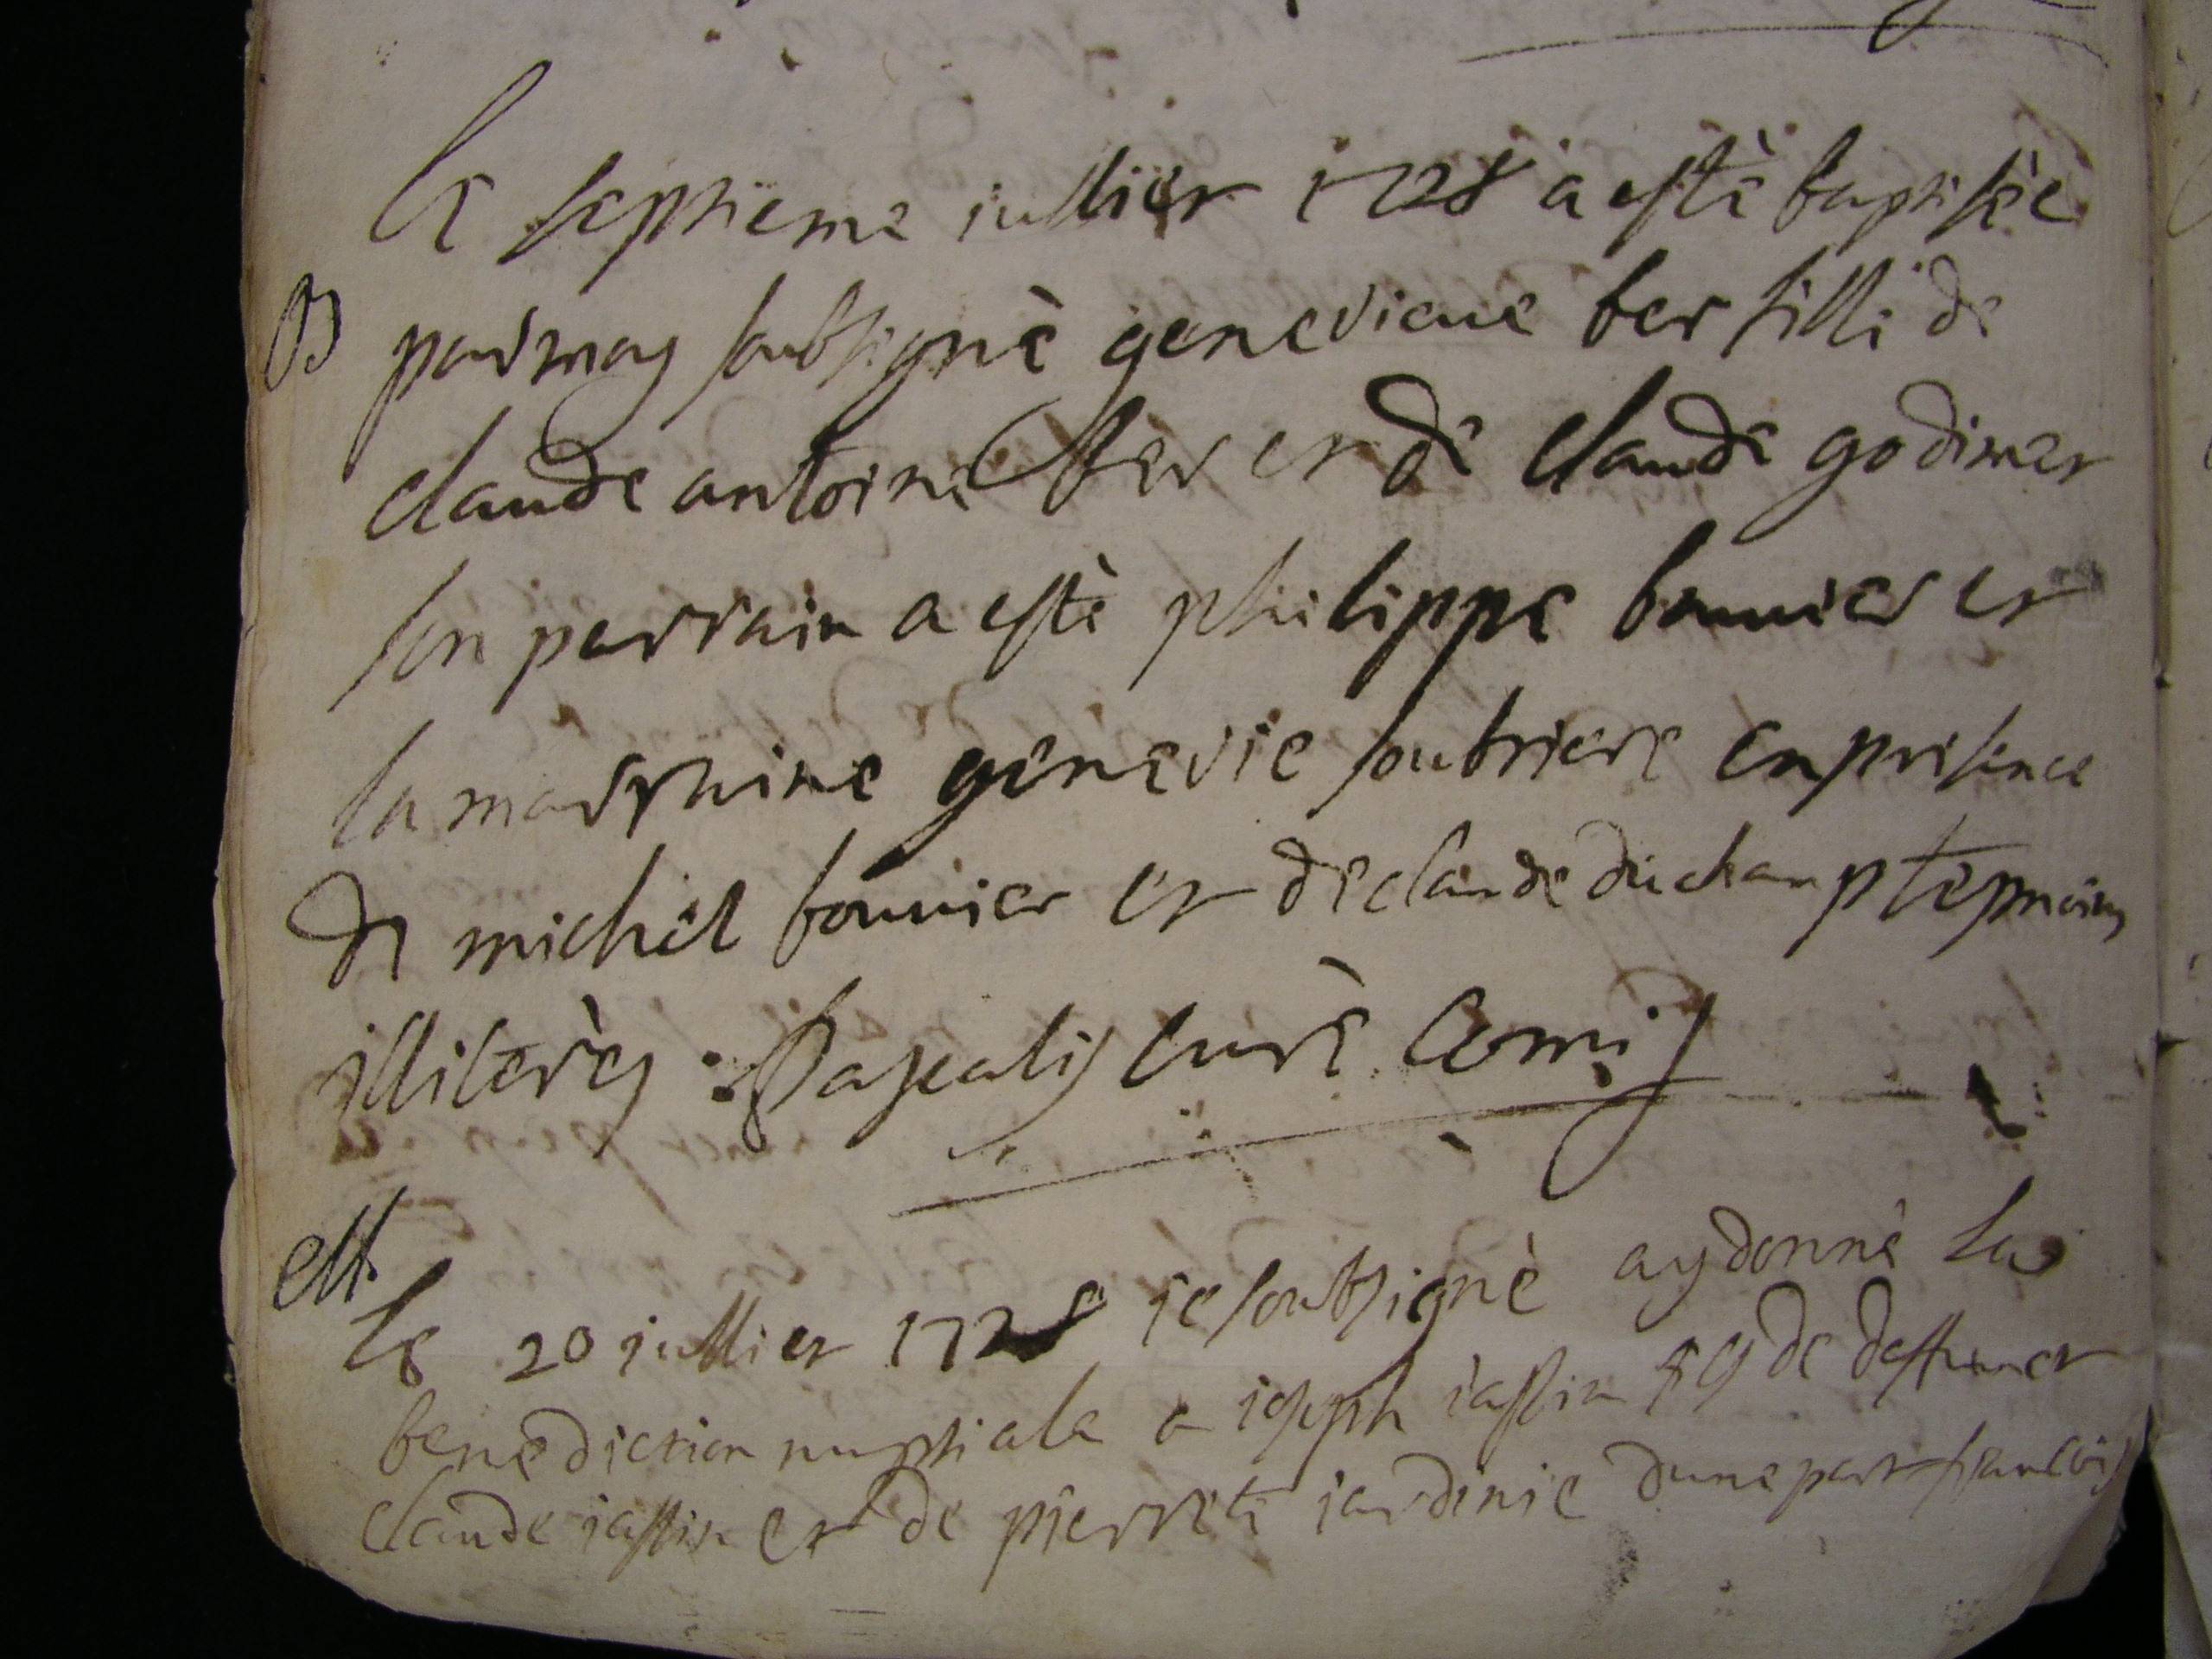 Le septieme iullier 1728 a esté baptisée
B parmoy soubsigné genevieue ber filli de
claude antoine ber et de claude godimer
son parrain a esté philippe bouuier et
la marraine genevie soubriere enpresence
de michel bouuier et declande duchamp tépmoins
illiterés : Pascalis curé Comis
M
Le 20 jullier 1728 je soubsigné ay donné la
benediction nuptiale a ioseph iassin fis de deffunct
claude iassin et de pierrete iardinie dunepart francois